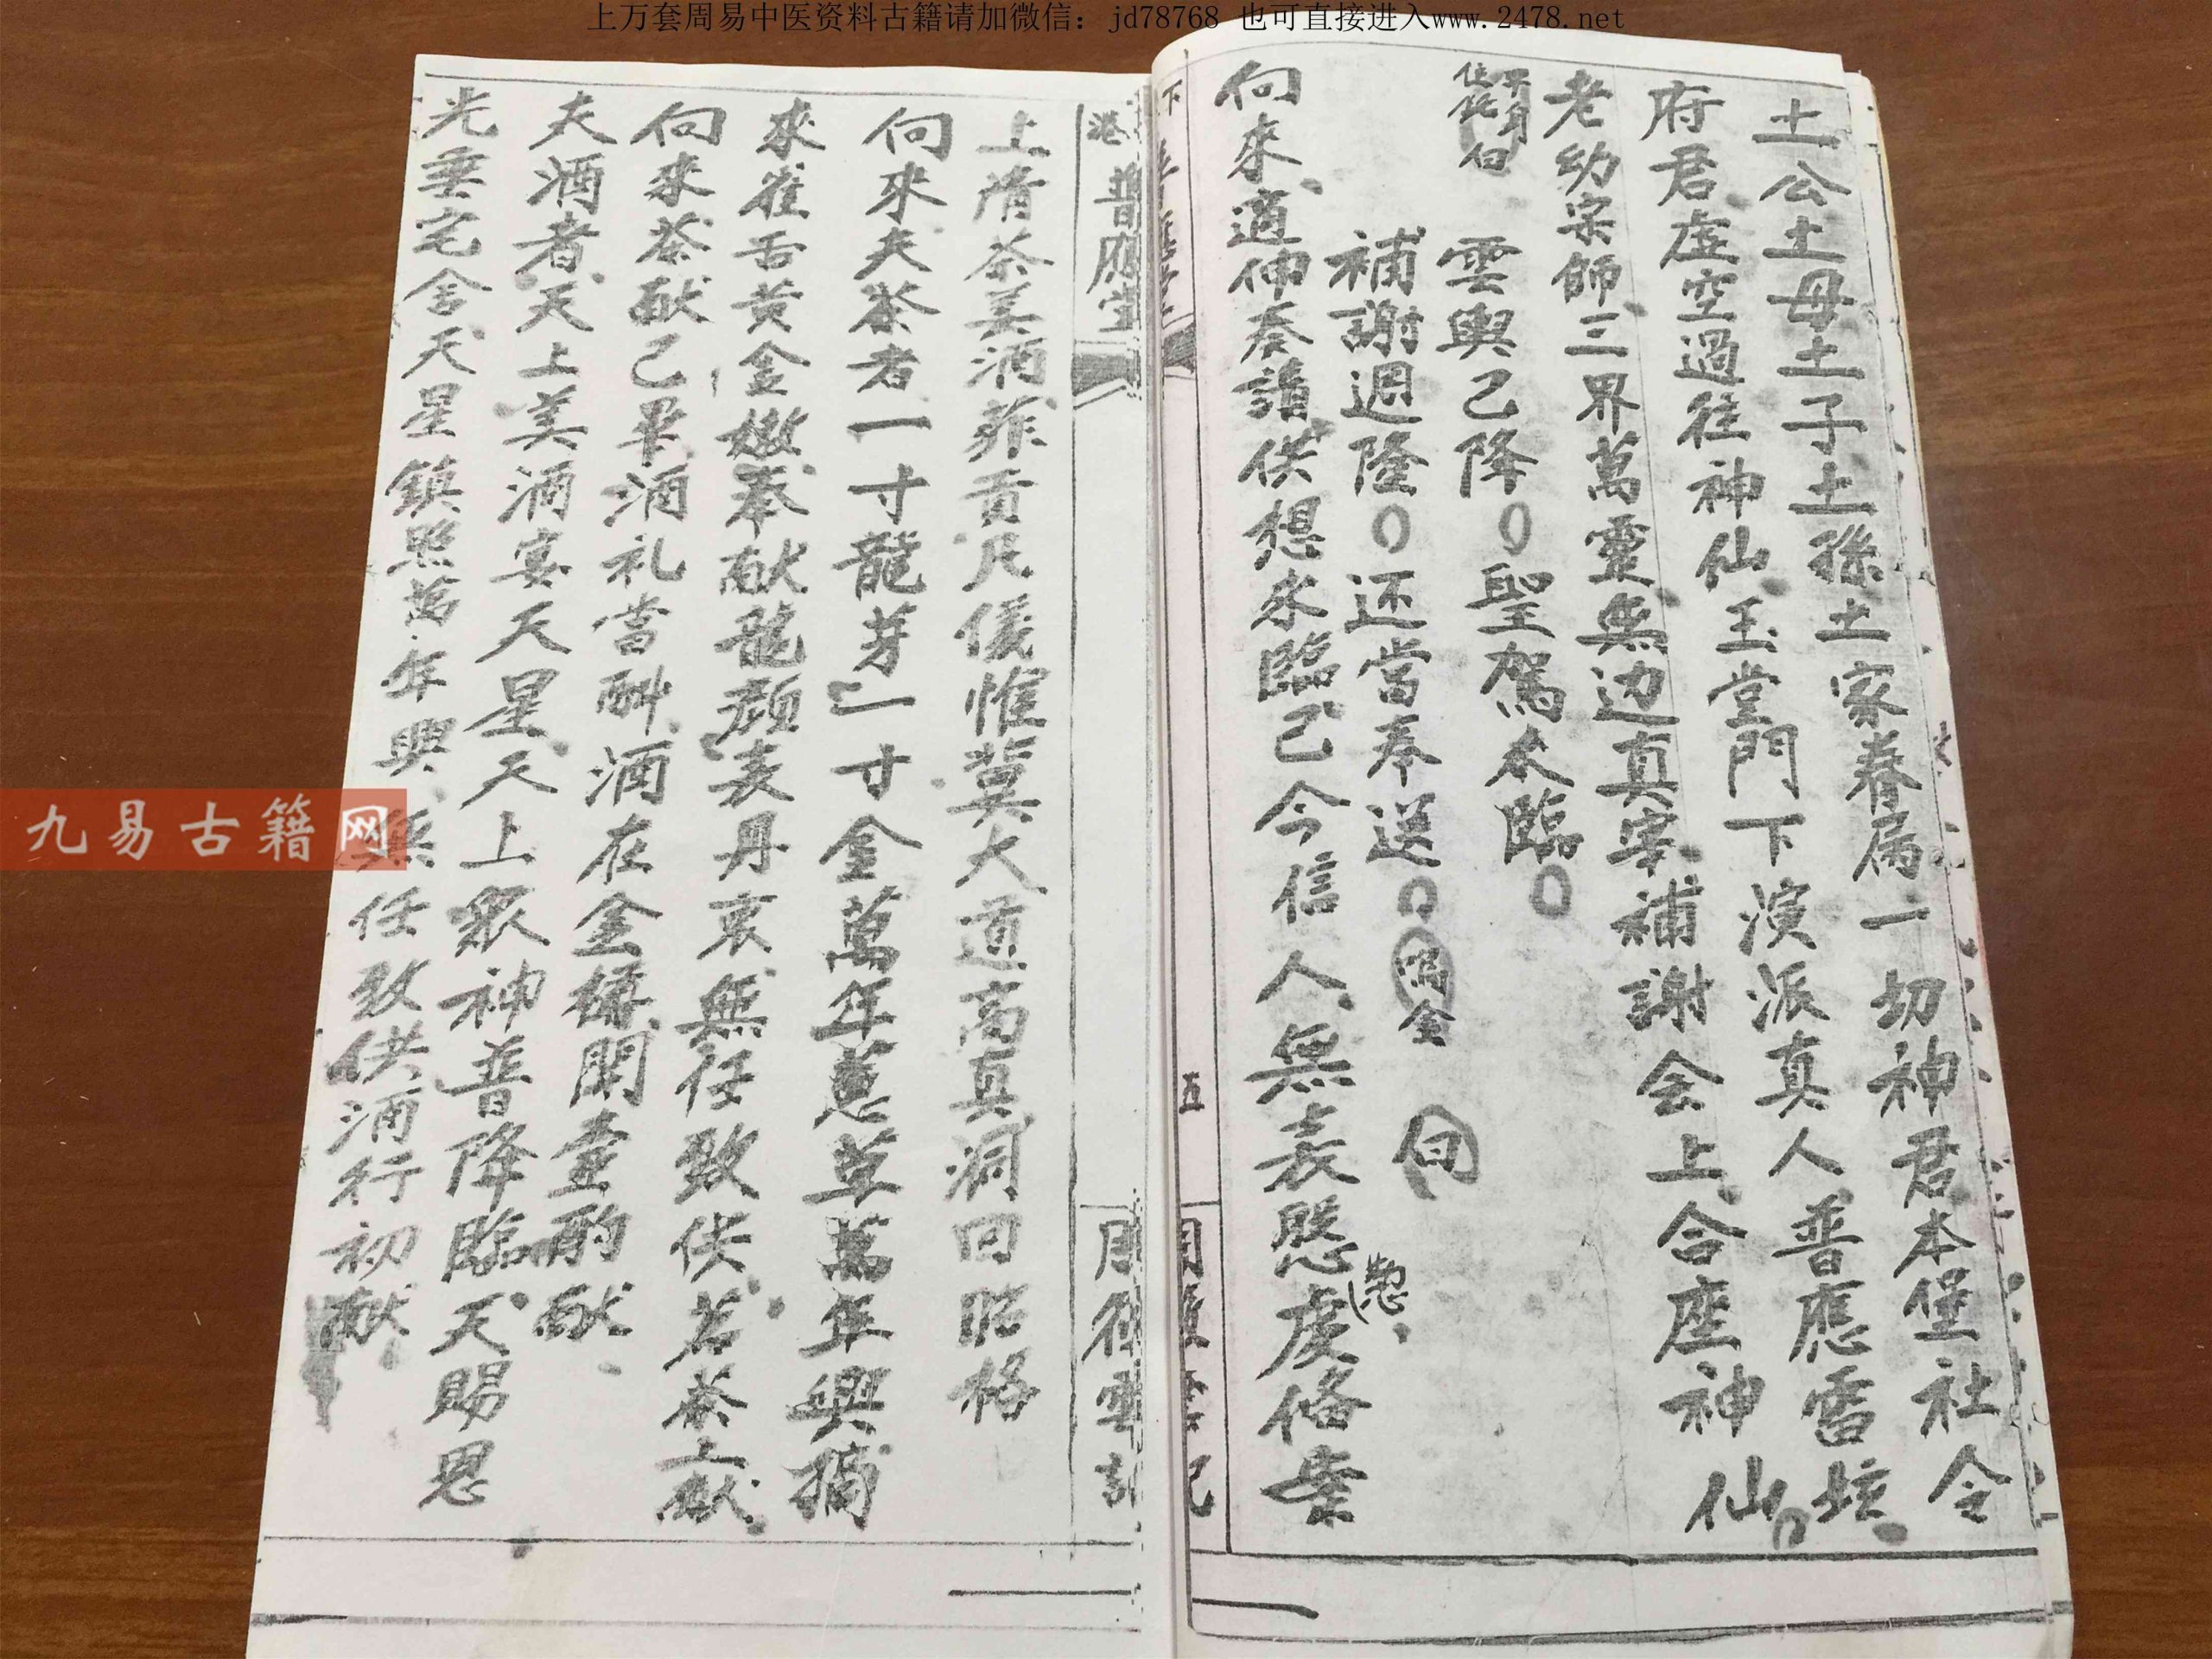 上万套周易中医资料古籍请加微信：jd78768 也可直接进入www.2478.net
土公土母土子土孫土家眷属一切神君本堡社令
府君虚空過往神仙玉堂門下演派真人普應雷坛
老幼宗師三界萬靈無边真宰補謝会上合座神仙
平身
住
白
雲輿己降〇聖駕來臨〇
補謝週隆〇还當奉送〇
金
白
向來適伸奏請供想來臨己今信人無表慇虔俻
懃
五
普應堂
上清茶美酒菲貢凡儀惟冀大道高真洞回昭格
向來夫茶者一寸龍芽一寸金萬年蕙草萬年興摘
來雀舌黄金嫩奉献龍顔表丹衷無任致供茗茶上献
向來茶献己畢酒礼當酙酒在金樽開壷酌献
夫酒者天上美酒宴天星天上眾神普降臨天賜恩
光垂宅舍天星鎮照萬年興無任致供酒行初献
九易古籍网